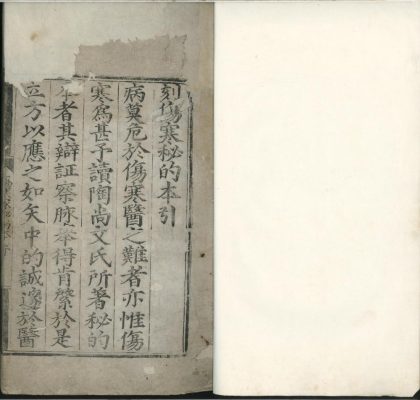 刻傷寒秘的本引
病莫危於傷寒醫之難者亦惟傷
寒爲甚予讀陶尚文氏所著秘的
本者其辯証察脉率得肯綮於是
立方以應之如矢中的誠邃於醫